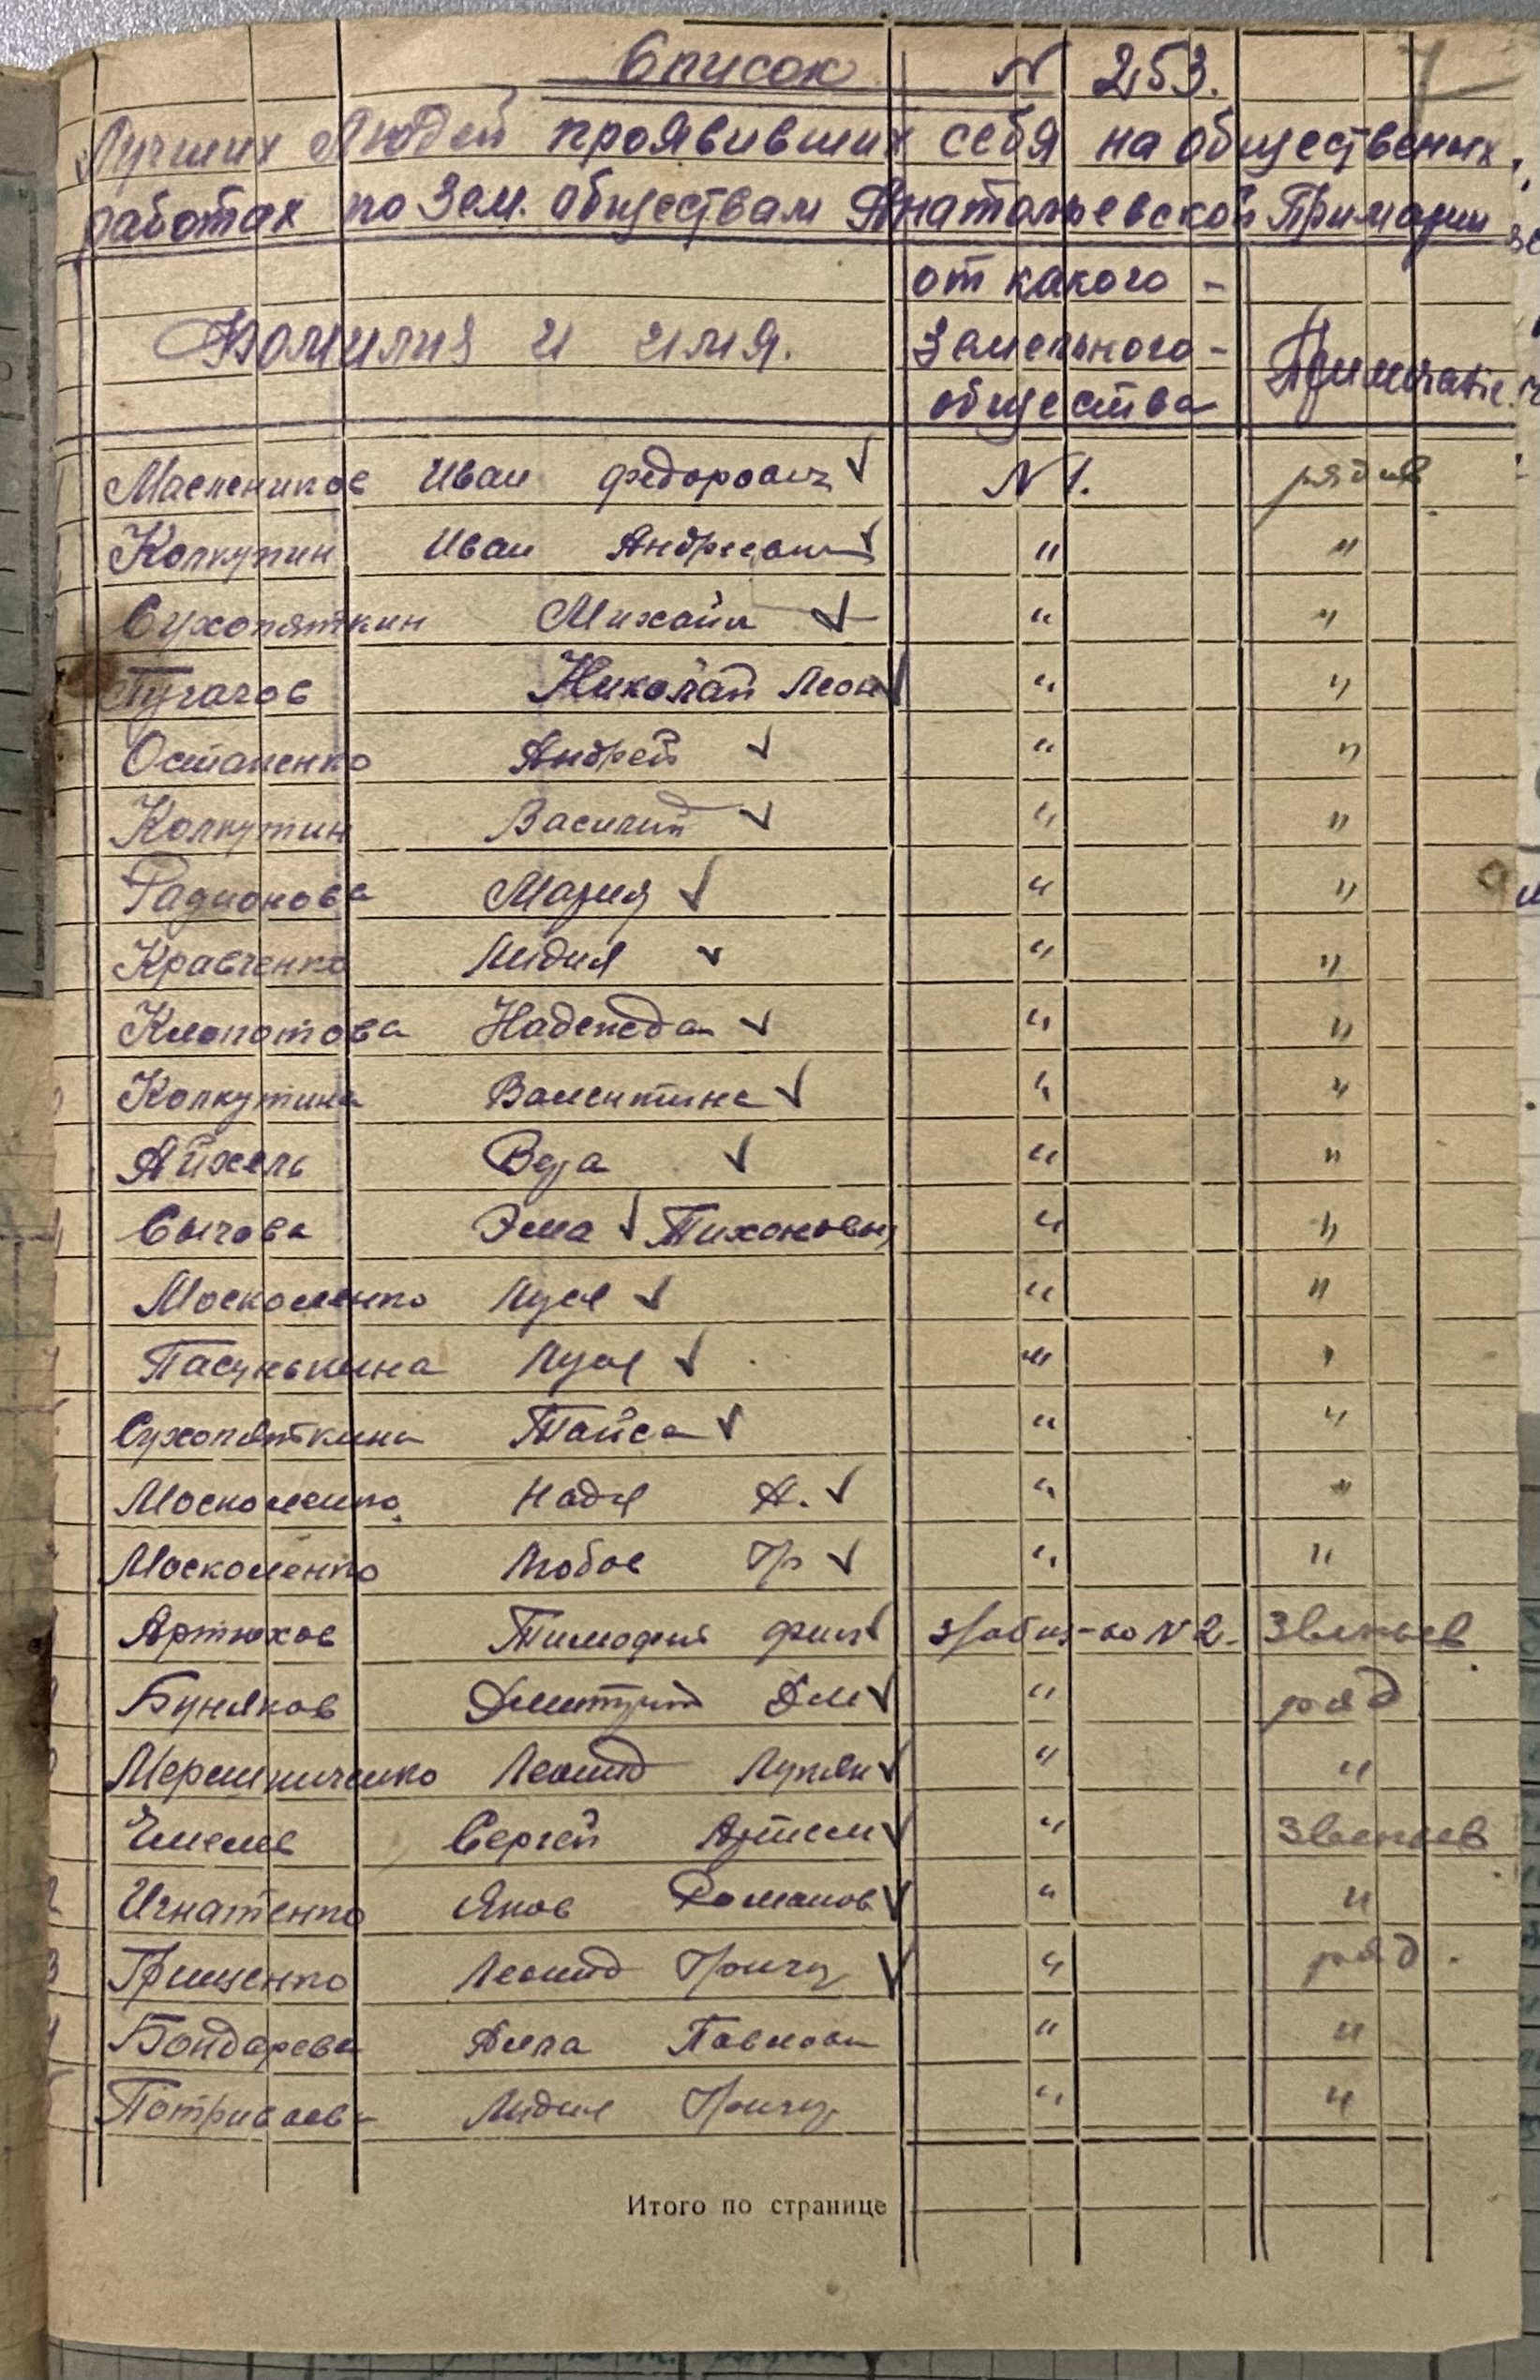 Список N 253.
Лучших Людей проявивших себя на общественых
работах по Зем. обществам Анатольевской Примарии
от какого -
Фамилия и имя. Земельного - Примечание
общества
Маслеников Иван Федорович N 1. рядов.
Колкутин Иван Андреевич " "
Сухопяткин Михаил " "
Пугачов Николай Леон " "
Остапенко Андрей " "
Колкутин Василий " "
Радионова Мария " "
Кравченко Лидия " "
Клопотова Надежда " "
Колкутина Валентина " "
Айхель Вера " "
Сычова Эма Тихоновн " "
Москаленко Луся " "
Пасунькина Луся " "
Сухопяткина Таиса " "
Москаленко Надя А. " "
Москаленко Любов Гр " "
Артюхов Тимофей Фил N 2. Звеньев
Буняков Дмитрий Дм " ряд
Мерешниченко Леонид Лукян " "
Емелев Сергей Артем " Звеньев
Игнатенко Яков Романов " "
Грищенко Леонид Григ " ряд.
Бондарева Алла Павловн " "
Лидия Григ " "
Итого по странице